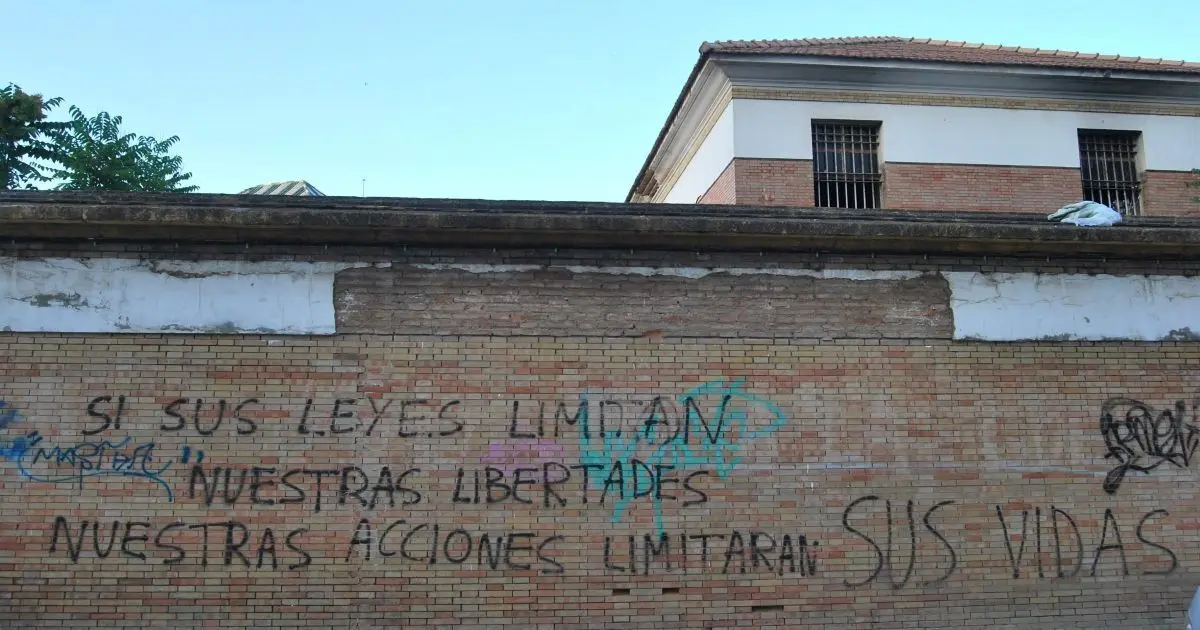 SI SUS LEYES LIMITAN
NUESTRAS LIBERTADES
NUESTRAS ACCIONES LIMITARAN SUS VIDAS